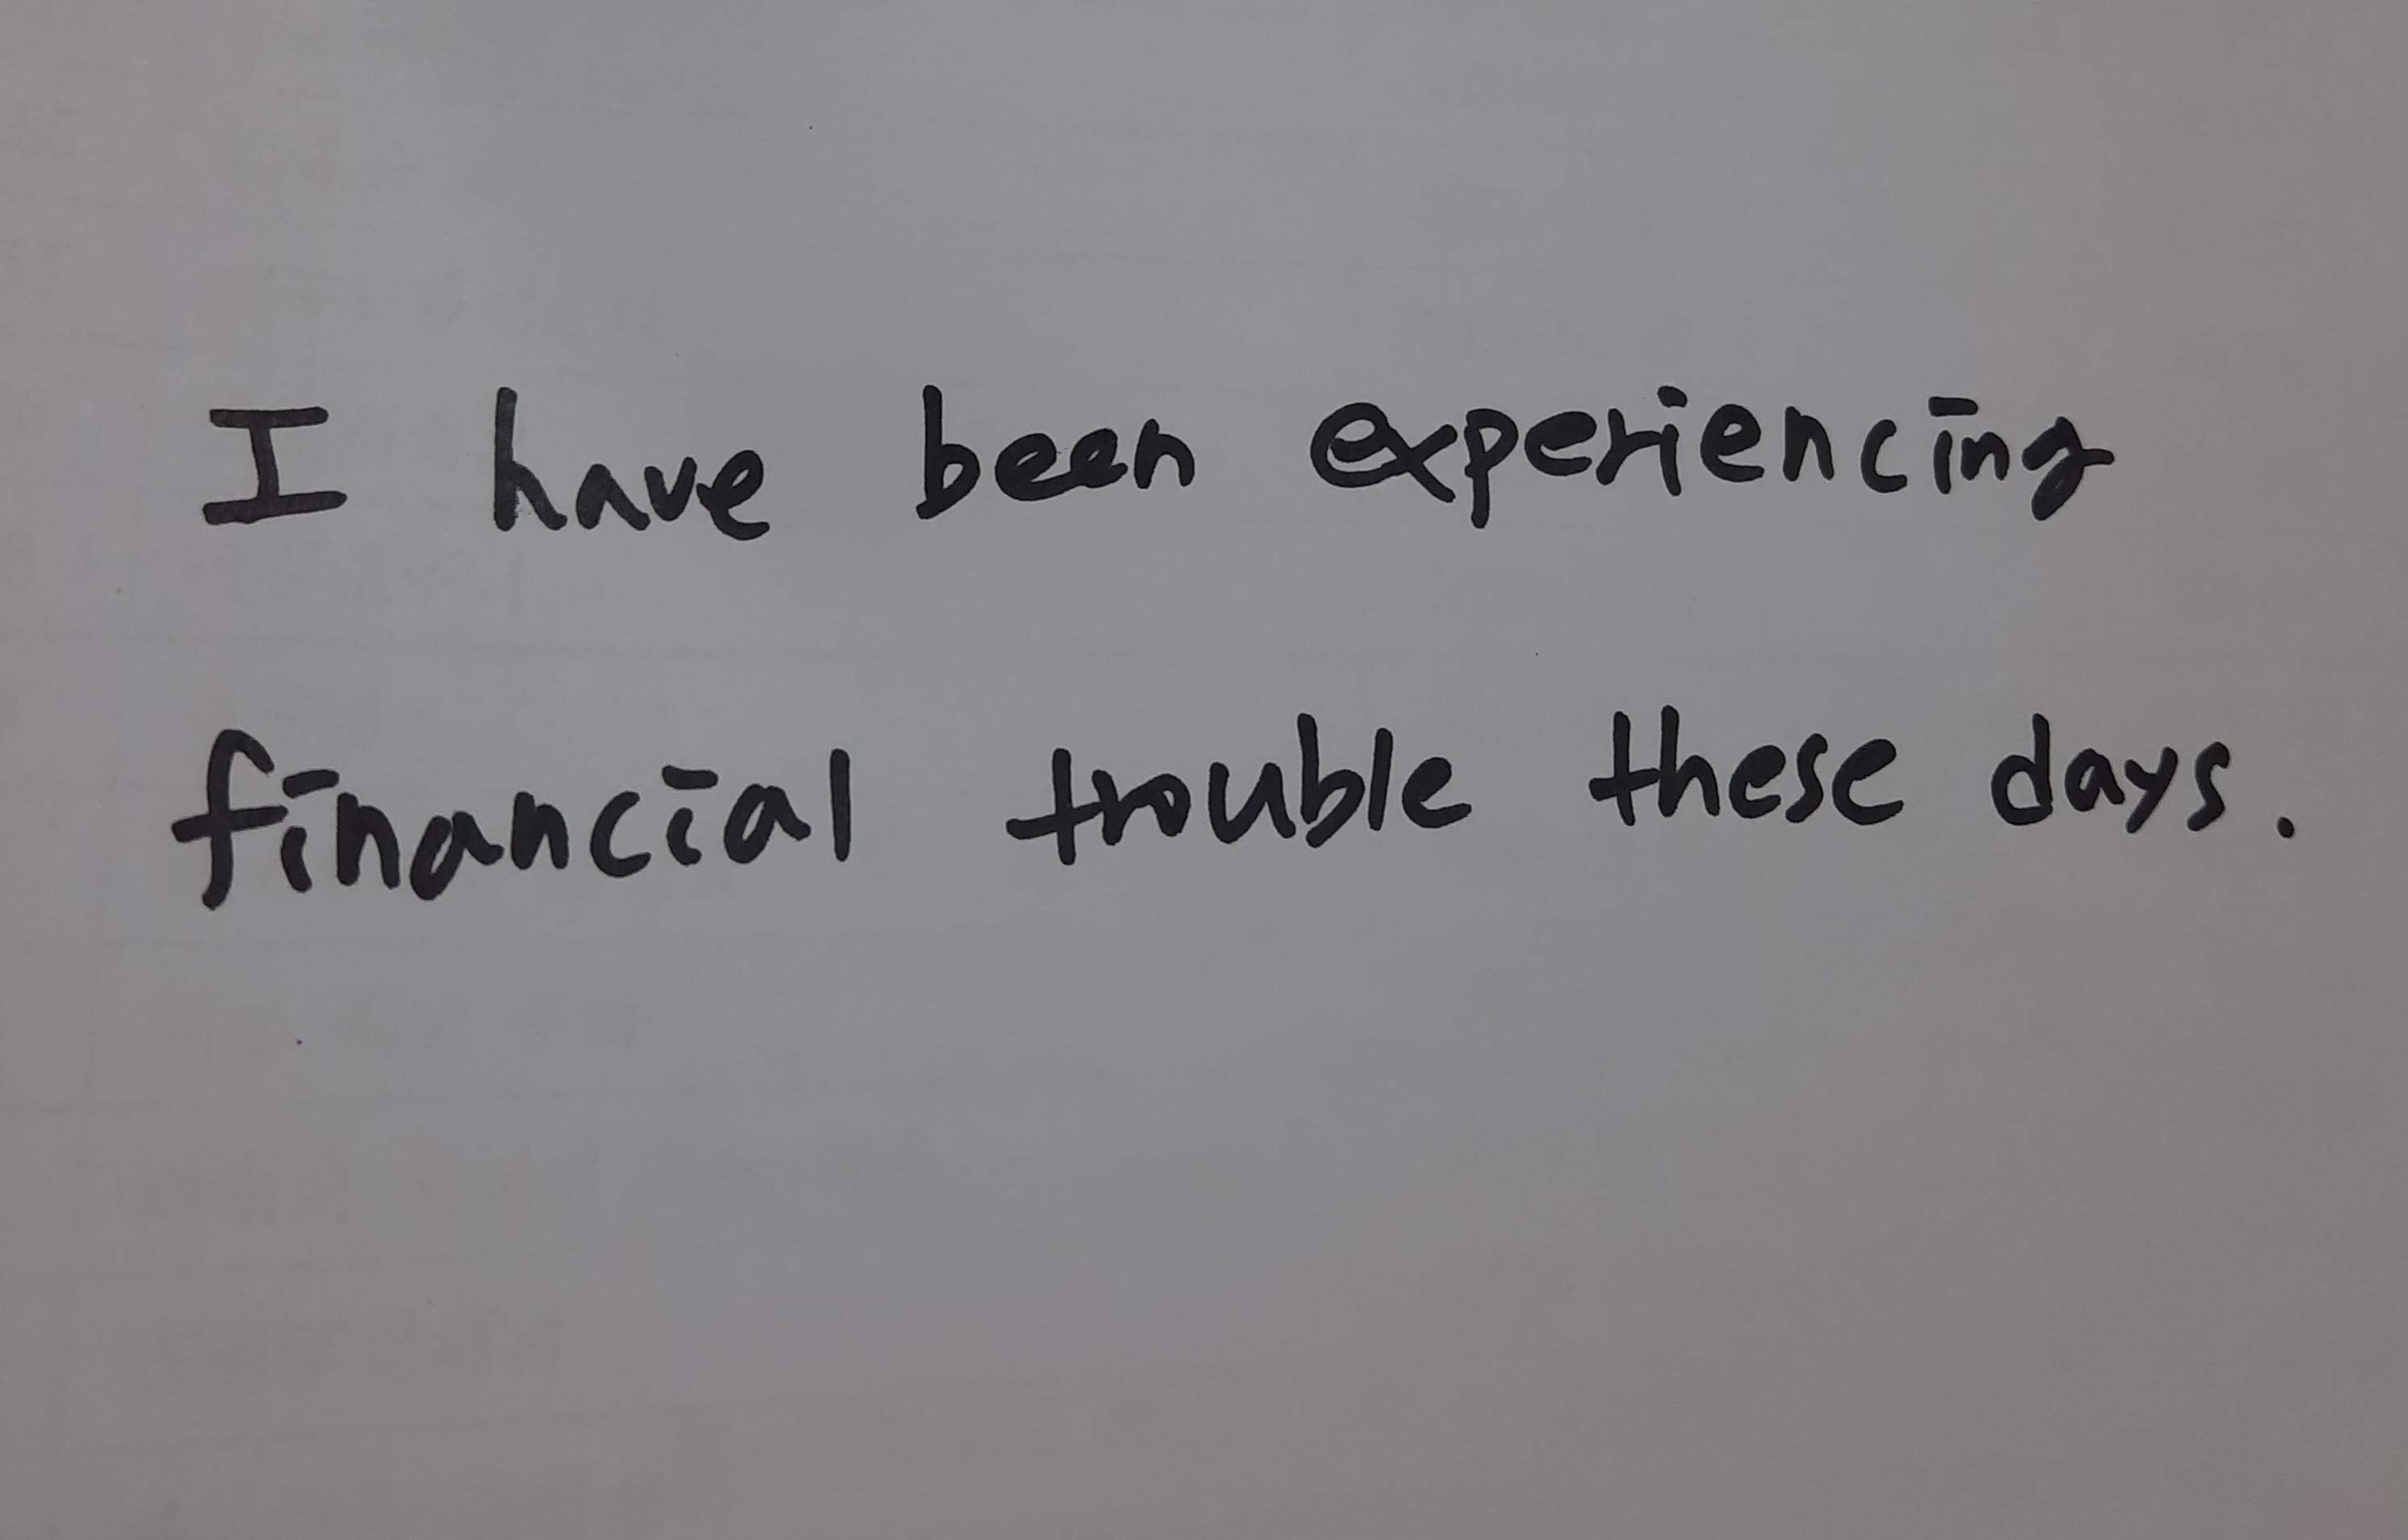 I have been experiencing
financial trouble these days.